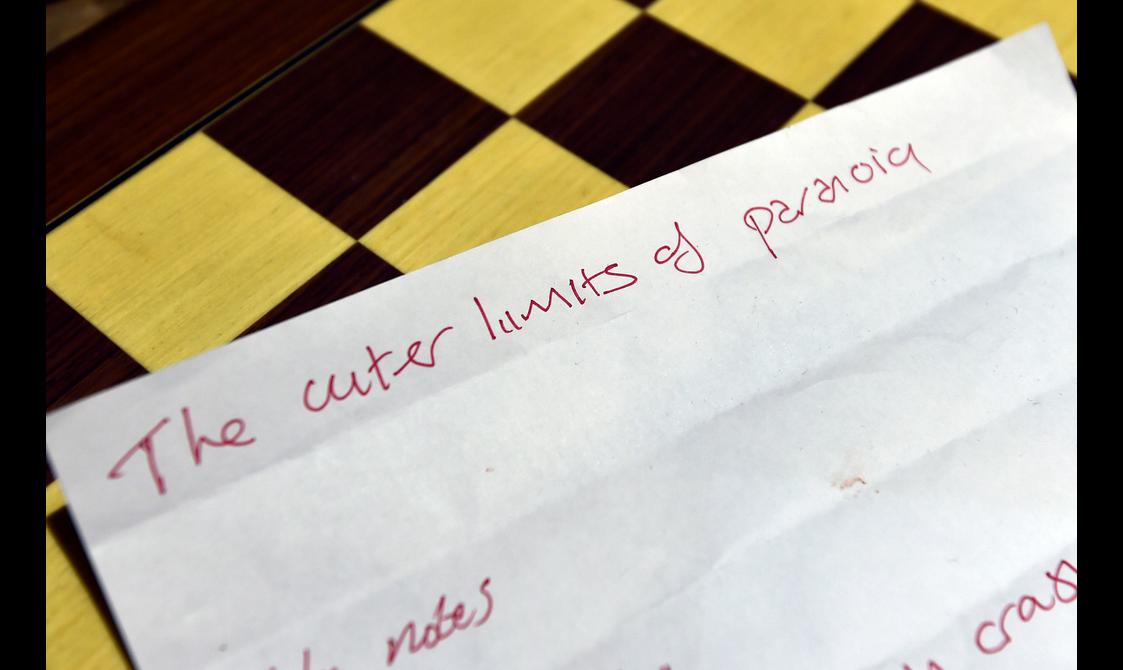 The outer limits of paranoia
notes